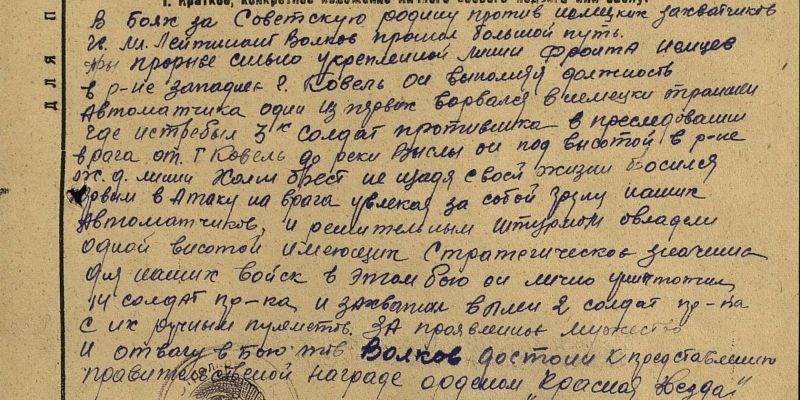 I. Краткое, конкретное изложение личного боевого подвига или заслуг.
ДЛЯ П
В боях за Советскую родину против немецких захватчиков
Мл. Лейтинант Волков прошол большой путь.
прорыве сильно укрепленной линии Фронта немцев
в р-не западнее г. Ковель он выполняя должность
Автоматчика один из первых ворвался в немецки траншеи
где истребил 3х солдат противника в преследовании
врага от г Ковель до реки Вислы он под высотой в р-не
ж. д. линии Холм Брест не щадя своей жизни бросился
первым в Атаку на врага увлекая за собой групу наших
Автоматчиков, и решительным штурмом овладели
одной висотой имеющих Стратегическое значение
для наших войск в этом бою он лично уничтожил
14 солдат пр-ка и захватил в плен 2 солдат пр-ка
с их ручным пулеметов. За проявленное мужество
и отвагу в бою тов Волков достоин к представлению
правительственой награде орденом "Красная Звезда"